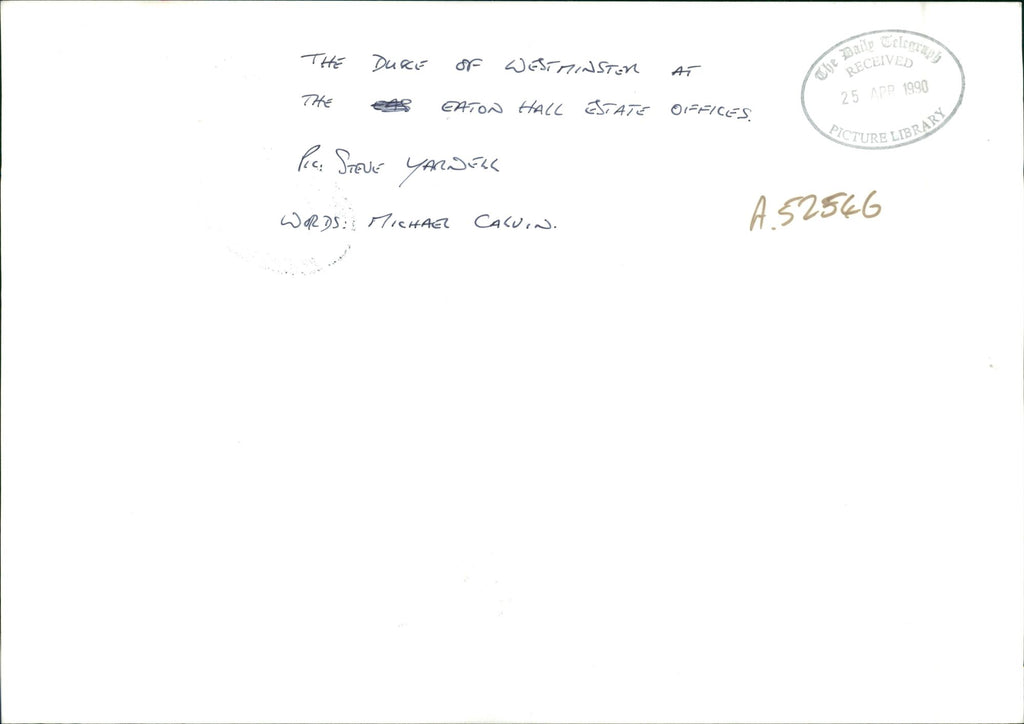 THE DUKE OF WESTMINSTER AT
THE EATON HALL ESTATE OFFICES.
PIC: STEVE YARNELL
WORDS: MICHAEL CALVIN.
The Daily Telegraph
RECEIVED
25 APR 1990
PICTURE LIBRARY
A.52546